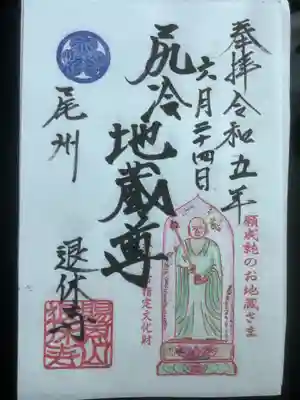 奉拝令和五年
六月二十四日
尻冷地蔵尊
尾州
退休寺
願成就のお地蔵さま
指定文化財